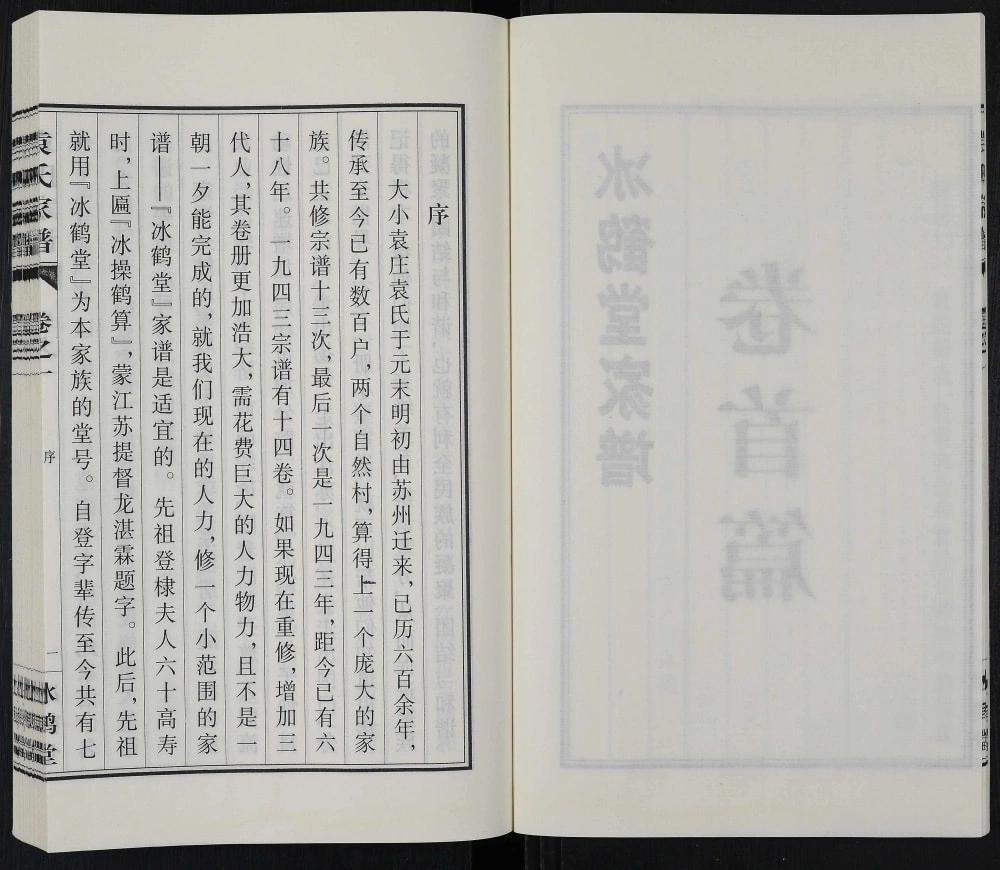 序
大小袁庄袁氏于元末明初由苏州迁来，已历六百余年，
传承至今已有数百户，两个自然村，算得上一个庞大的家
族。共修宗谱十三次，最后一次是一九四三年，距今已有六
十八年。一九四三宗谱有十四卷。如果现在重修，增加三
代人，其卷册更加浩大，需花费巨大的人力物力，且不是一
朝一夕能完成的，就我们现在的人力，修一个小范围的家
谱——『冰鹤堂』家谱是适宜的。先祖登棣夫人六十高寿
时，上匾『冰操鹤算』，蒙江苏提督龙湛霖题字。此后，先祖
就用『冰鹤堂』为本家族的堂号。自登字辈传至今共有七
袁氏家谱
卷之一
序
一
冰鹤堂
冰鹤堂家谱
卷首篇